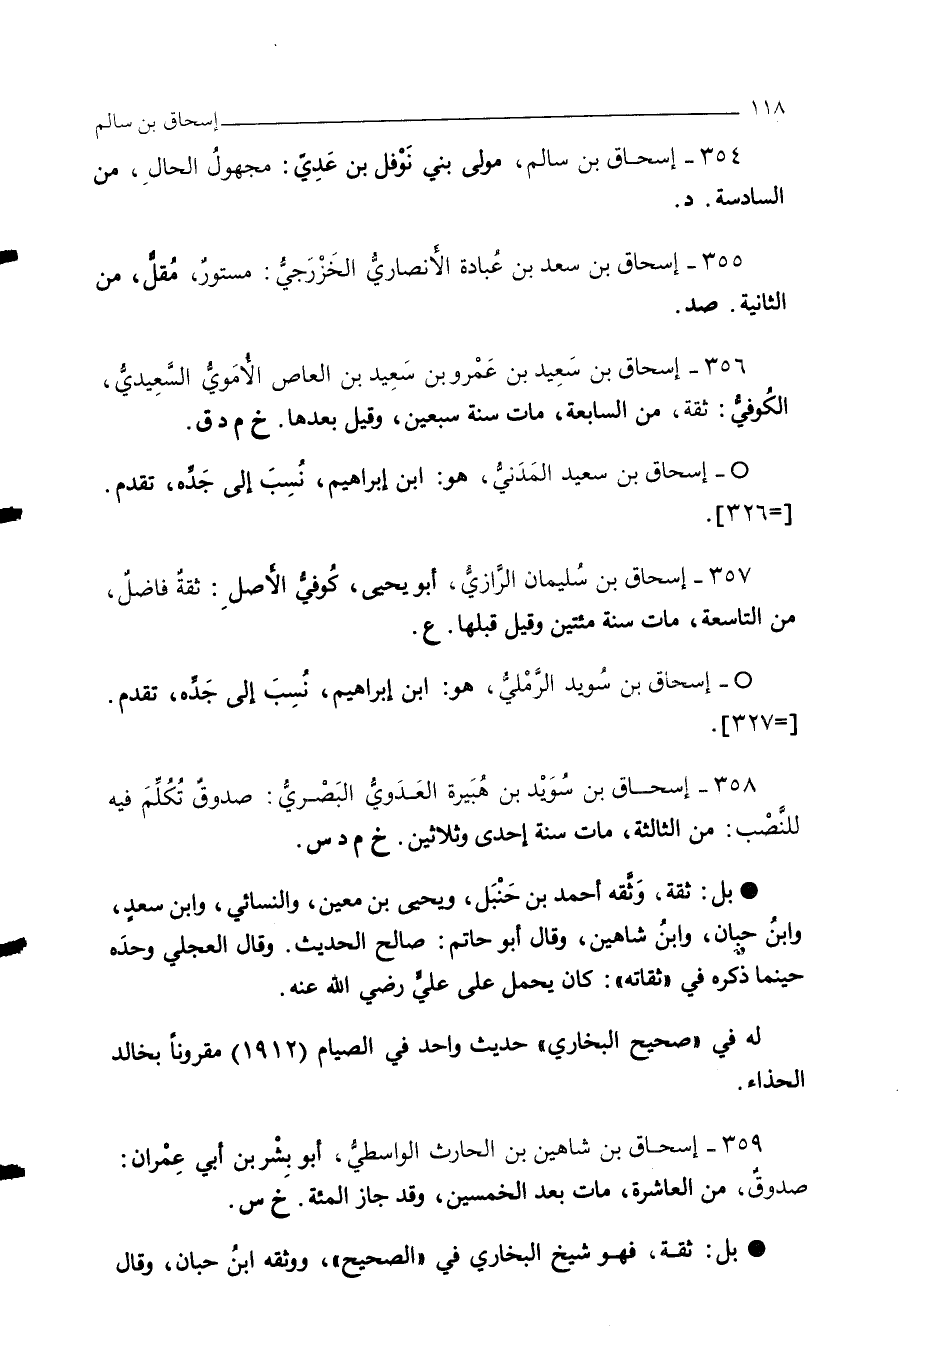 ١١٨ إسحاق بن سالم
٣٥٤ - إسحاق بن سالم، مولى بني نَوْفل بن عَدِيّ: مجهولُ الحال، من
السادسة. د.
٣٥٥ - إسحاق بن سعد بن عُبادة الأنصاريُّ الخَزْرَجيُّ: مستورٌ، مُقلٌّ، من
الثانية. صد.
٣٥٦ - إسحاق بن سَعِيد بن عَمْرو بن سَعِيد بن العاص الأُمَويُّ السَّعِيديُّ،
الكُوفيُّ: ثقة، من السابعة، مات سنة سبعين، وقيل بعدها. خ م د ق.
○ - إسحاق بن سعيد المَدَنيُّ، هو: ابن إبراهيم، نُسِبَ إلى جَدِّه، تقدم.
[=٣٢٦].
٣٥٧ - إسحاق بن سُليمان الرَّازيُّ، أبو يحيى، كُوفيُّ الأَصل: ثقةٌ فاضلٌ،
من التاسعة، مات سنة مئتين وقيل قبلها. ع.
○ - إسحاق بن سُويد الرَّمْليُّ، هو: ابن إبراهيم، نُسِبَ إلى جَدِّه، تقدم.
[=٣٢٧].
٣٥٨ - إسحاق بن سُوَيْد بن هُبَيرة العَدَويُّ البَصْريُّ: صدوقٌ تُكُلِّمَ فيه
للنَّصْب: من الثالثة، مات سنة إحدى وثلاثين. خ م د س.
● بل: ثقة، وَثَّقه أحمد بن حَنْبَل، ويحيى بن معين، والنسائي، وابن سعدٍ،
وابنُ حبان، وابنُ شاهين، وقال أبو حاتم: صالح الحديث. وقال العجلي وحدَه
حينما ذكره في «ثقاته»: كان يحمل على عليٍّ رضي الله عنه.
له في «صحيح البخاري» حديث واحد في الصيام (١٩١٢) مقروناً بخالد
الحذاء.
٣٥٩ - إسحاق بن شاهين بن الحارث الواسطيُّ، أبو بِشْر بن أبي عِمْران:
صدوقٌ، من العاشرة، مات بعد الخمسين، وقد جاز المئة. خ س.
● بل: ثقة، فهو شيخ البخاري في «الصحيح»، ووثقه ابنُ حبان، وقال